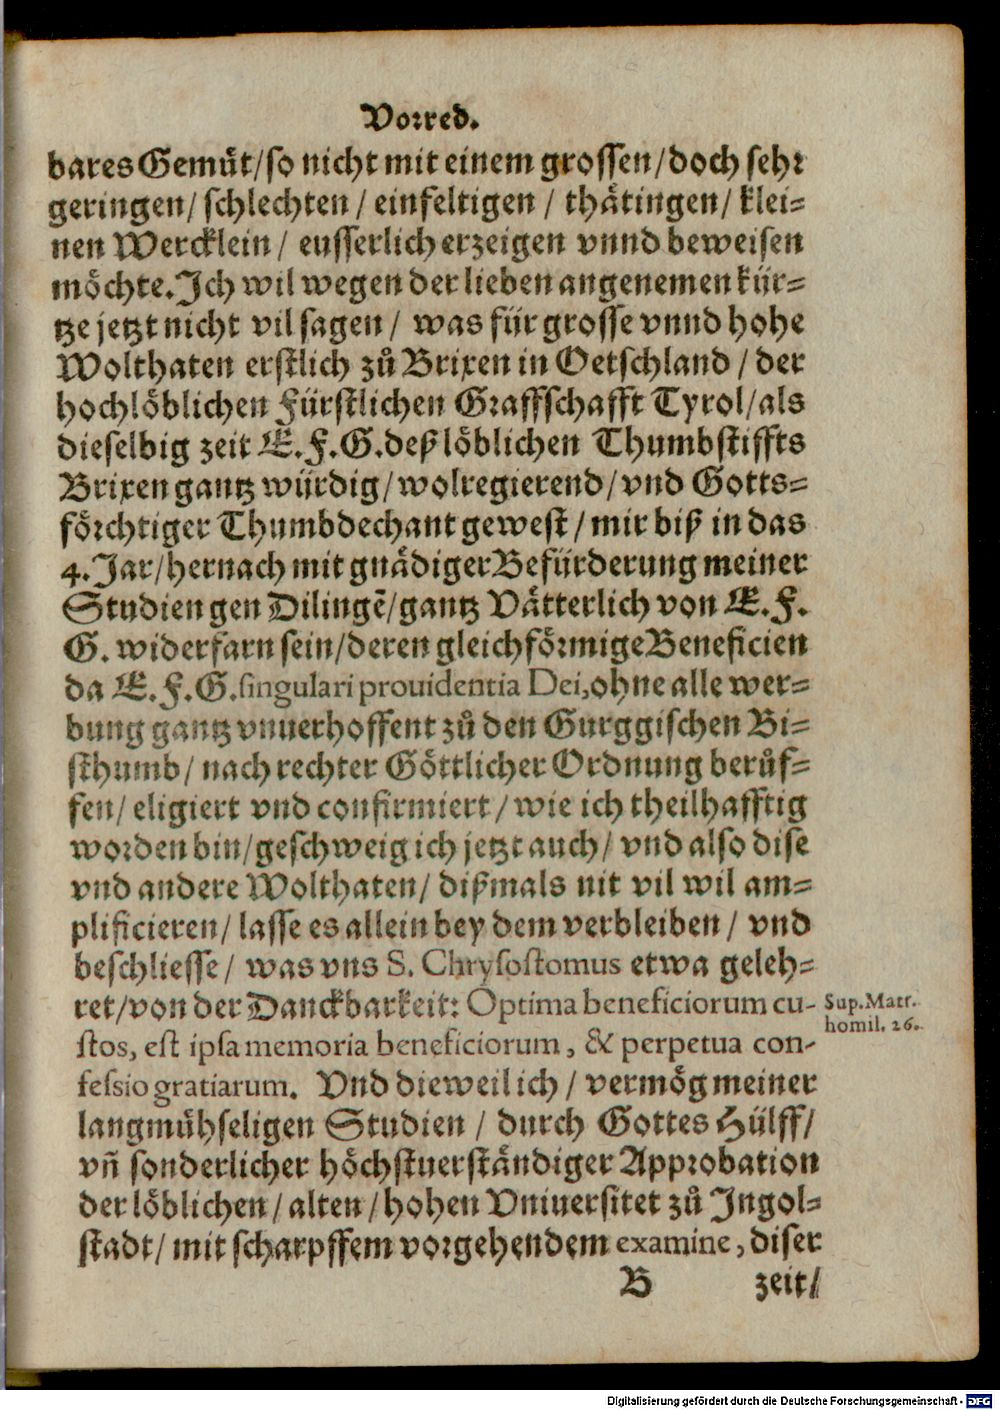 Vorred.
bares Gemüt/so nicht mit einem grossen/doch sehr
geringen/ schlechten / einfeltigen / thätingen/ klei=
nen Wercklein / eusserlich erzeigen vnnd beweisen
möchte. Ich wil wegen der lieben angenemen kür=
tze jetzt nicht vil sagen / was für grosse vnnd hohe
Wolthaten erstlich zů Brixen in Oetschland / der
hochlöblichen Fürstlichen Graffschafft Tyrol/als
dieselbig zeit E.F.G.deß löblichen Thumbstiffts
Brixen gantz würdig/wolregierend/vnd Gotts=
förchtiger Thumbdechant gewest / mir biß in das
4. Jar/hernach mit gnädiger Befürderung meiner
Studien gen Dilingẽ/gantz Vätterlich von E.F.
G. widerfarn sein/deren gleichförmige Beneficien
da E.F.G.singulari prouidentia Dei,ohne alle wer=
bung gantz vnuerhoffent zů den Gurggischen Bi=
sthumb/ nach rechter Göttlicher Ordnung berůf=
fen/ eligiert vnd confirmiert / wie ich theilhafftig
worden bin/geschweig ich jetzt auch/ vnd also dise
vnd andere Wolthaten/ dißmals nit vil wil am=
plificieren/ lasse es allein bey dem verbleiben / vnd
beschliesse/ was vns S. Chrysostomus etwa geleh=
ret/von der Danckbarkeit: Optima beneficiorum cu-
stos, est ipsa memoria beneficiorum, & perpetua con-
fessio gratiarum. Vnd dieweil ich / vermög meiner
langmühseligen Studien / durch Gottes Hülff/
vñ sonderlicher höchstuerständiger Approbation
der löblichen/ alten/ hohen Vniuersitet zů Ingol=
stadt/ mit scharpffem vorgehendem examine, diser
Sup. Matt.
homil. 26.
B zeit/
Digitalisierung gefördert durch die Deutsche Forschungsgemeinschaft - DFG